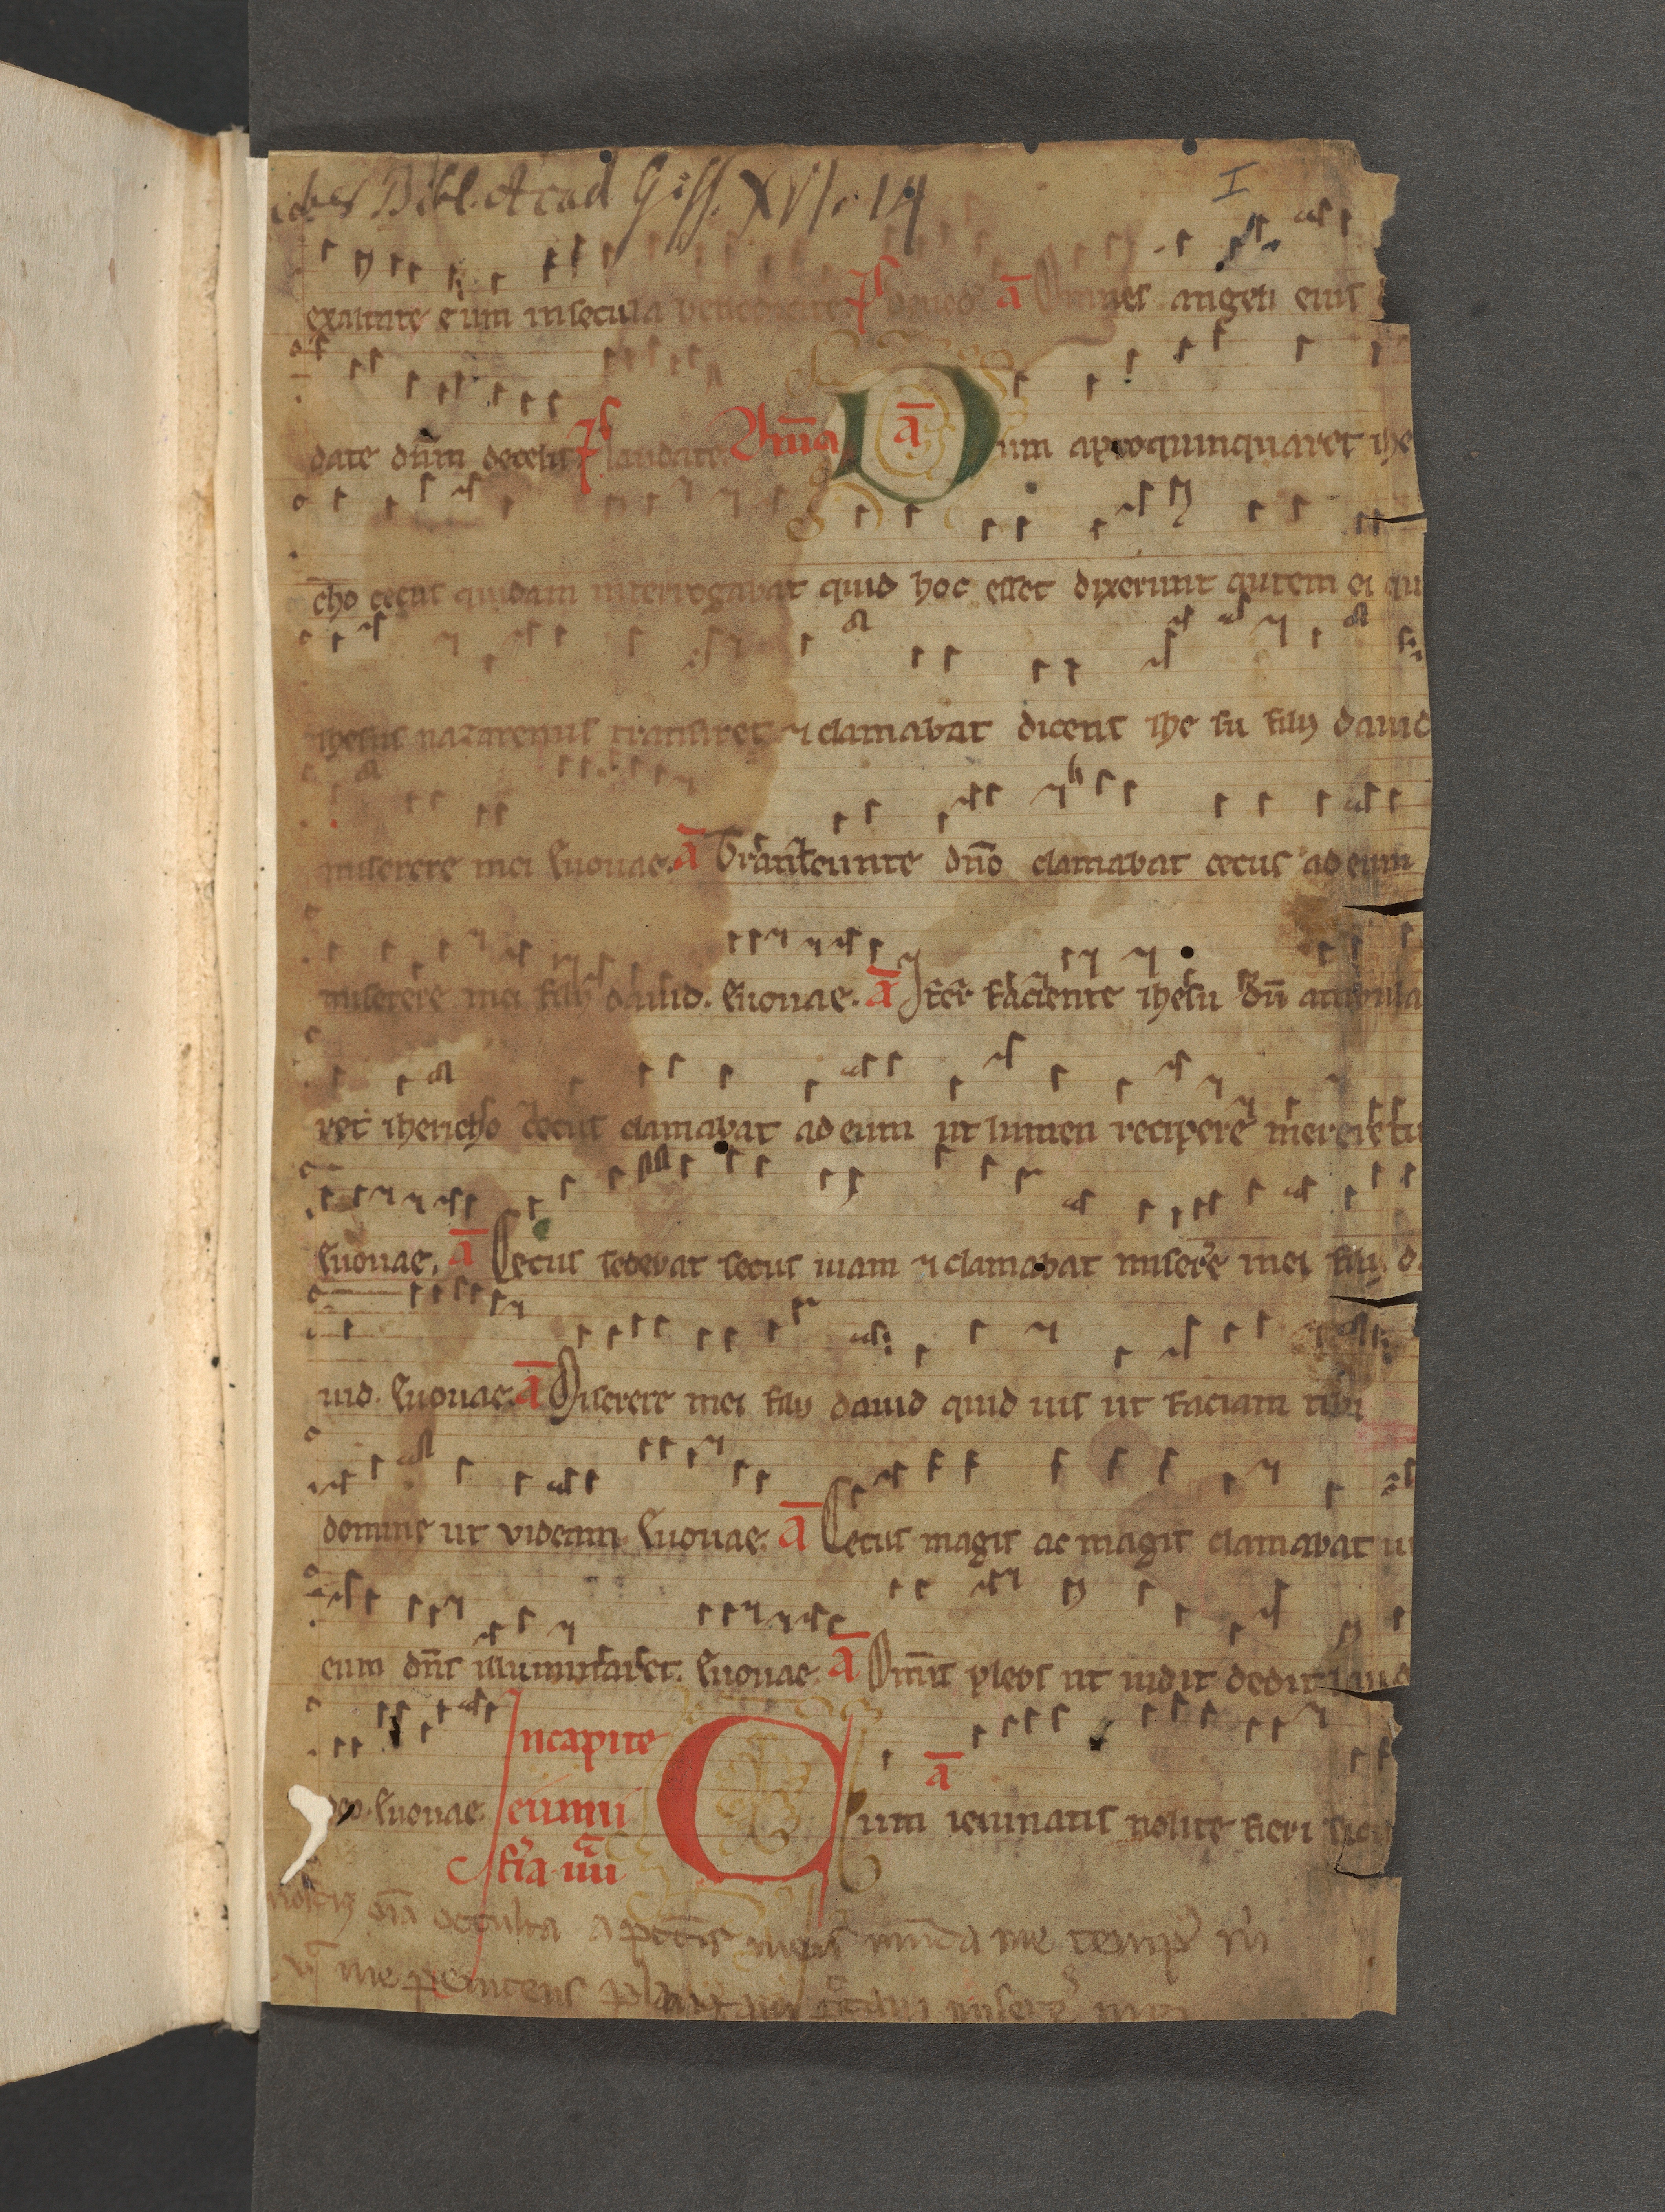 Bibl. Acad Giss. XVI. 14
I
exaltate eum in secula benedicite Ps bened ā Omnes angeli eius
date dn̄m de celis Ps laudate ā Dum apropinquaret ihe
cho cecus quidam interrogabat quid hoc esset dixerunt autem ei qu
ihesus nazarenus transiret ⁊ clamabat dicens ihe su filij dauid
miserere mei Euouae. ā Transeunte dn̄o clamabat cecus ad eum
miserere mei filij dauid. Euouae. ā Iter faciente ihesu dū
ret ihericho cecus clamabat ad eum ut lumen recipere mereretu
Euouae. ā Cecus sedebat secus uiam ⁊ clamabat misere mei filij d
uid. Euouae. ā Miserere mei filij dauid quid uis ut faciam tibi
domine ut videam Euouae. ā Cecus magis ac magis clamabat ut
eum dn̄s illuminaret. Euouae. ā Omnis plebs ut uidit dedit laud
deo. Euouae. In capite ieiunii fr̄a iiij ā Cum ieiunatis nolite fieri sicut
oīa occulta a meis munda me
me penitens misere